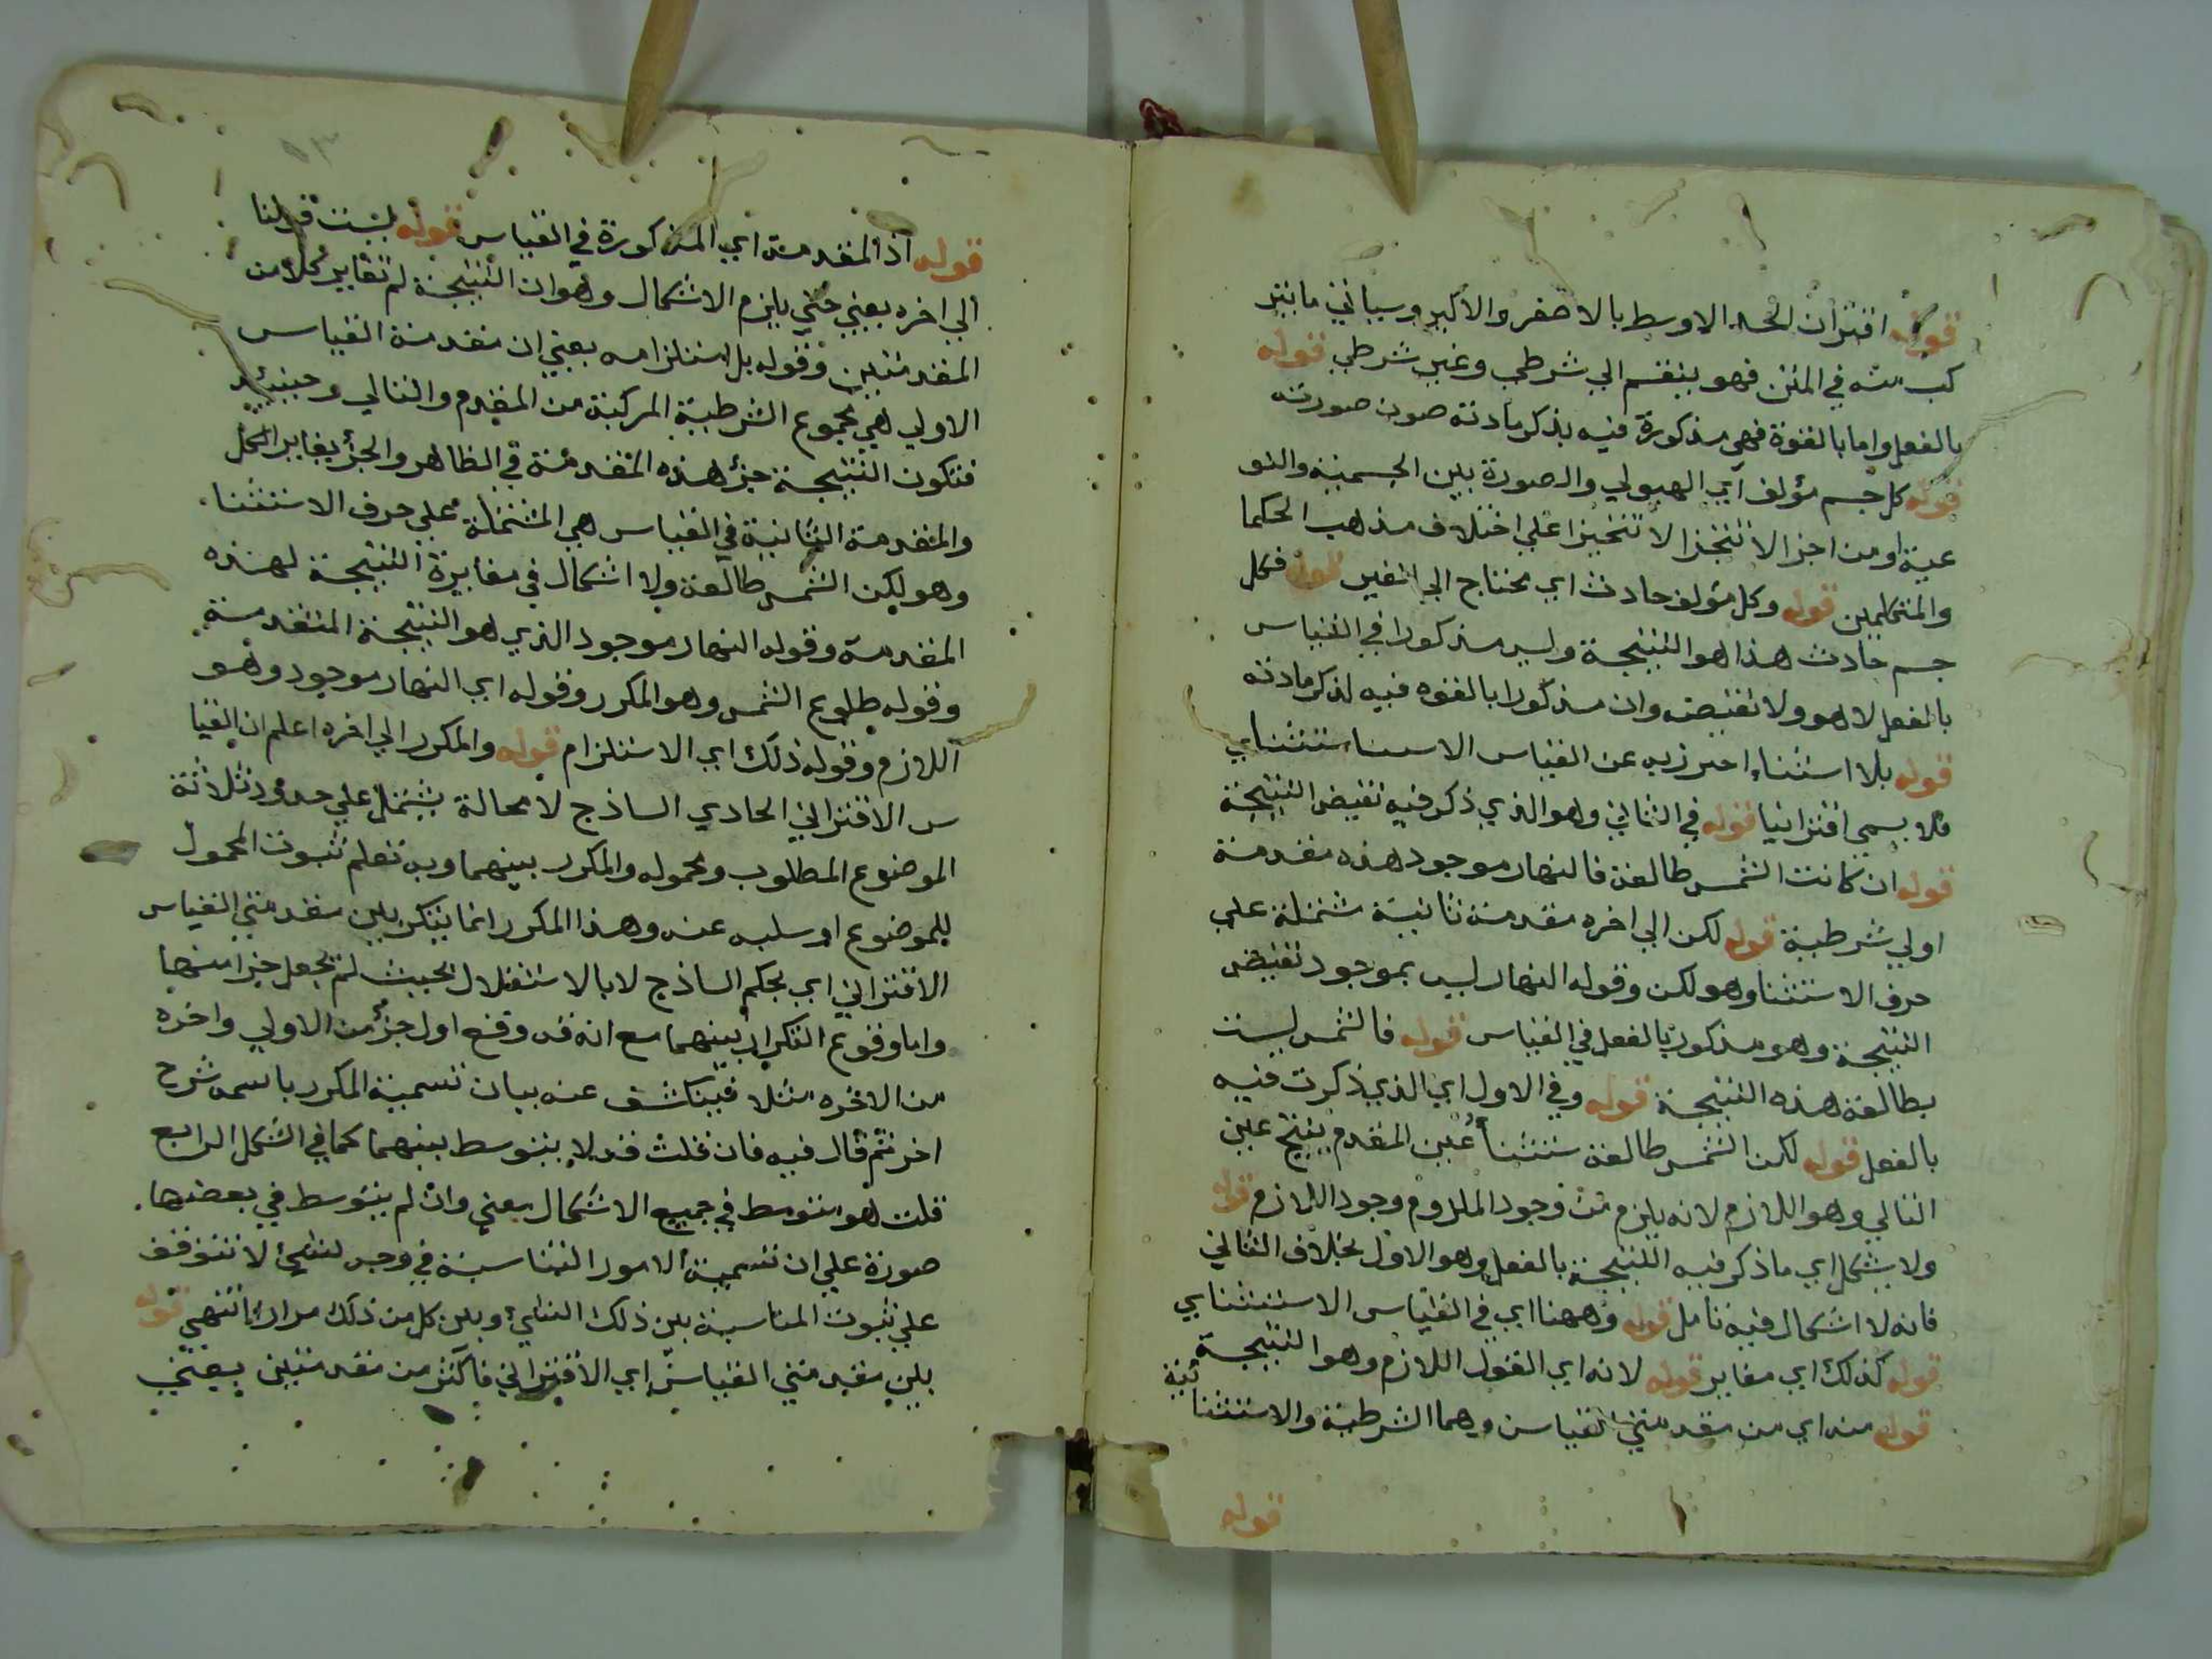 قوله اقتران الحد الاوسط بالاصغر والاكبر وسياتي مايتر
كب منه في المتن فهو ينقسم الي شرطي وغير شرطي قوله
بالفعل واما بالقوة فهي مذكورة فيه بذكر مادته صون صورته
قوله كل جسم مؤلف اي الهيولي والصورة بين الجسمية والنو
عية او من اجزا لا تتجزا لا تتحيزا علي اختلاف مذهب الحكما
والمتكلمين قوله وكل مؤلف حادث اي محتاج الي الغير قوله فكل
جسم حادث هذا هو النتيجة وليس مذكورا في القياس
بالفعل لا هو ولا نقيضه وان مذكورا بالقوه فيه لذكر مادته
قوله بلا استثناء احترز به عن القياس الاستثنائي
فلا يسمي اقترانيا قوله في الثاني وهو الذي ذكر فيه نقيض النتيجة
قوله ان كانت الشمس طالعة فالنهار موجود هذه مقدمة
اولي شرطية قوله لكن الي اخره مقدمة ثانية مشتملة علي
حرف الاستثنا وهو لكن وقوله النهار ليس بموجود نقيض
النتيجة وهو مذكور بالفعل في القياس قوله فالشمس ليست
بطالعة هذه النتيجة قوله وفي الاول اي الذي ذكرت فيه
بالفعل قوله لكن الشمس طالعة ستثنا عين المقدم ينتج عين
التالي وهو اللازم لانه يلزم من وجود الملزوم وجود اللازم قوله
ولا يشكل اي ما ذكر فيه النتيجة بالفعل وهو الاول بخلاف الثاني
فانه لا اشكال فيه تامل قوله وههنا اي في القياس الاستثنايي
قوله كذلك اي مغاير قوله لانه اي القول اللازم وهو النتيجة
قوله منه اي من مقدمتي القياس وهما الشرطية والاستثنا ئية
قوله
قوله اذ المقدمة اي المذكورة في القياس قوله ليست قولنا
الي اخره يعني حتي يلزم الاشكال وهو ان النتيجة لم تغاير كلا من
المقدمتين وقوله بل استلزامه يعني ان مقدمة القياس
الاولي هي مجموع الشرطية المركبة من المقدم والتالي وحينئذ
فتكون النتيجة جزأ هذه المقدمة في الظاهر والجزأ يغاير الكل
والمقدمة الثانية في القياس هي المشتملة علي حرف الاستثنا
وهو لكن الشمس طالعة ولا اشكال في مغايرة النتيجة لهذه
المقدمة وقوله النهار موجود الذي هو النتيجة المتقدمة
وقوله طلوع الشمس وهو المكرر وقوله اي النهار موجود وهو
اللازم وقوله ذلك اي الاستلزام قوله والمكرر الي اخره اعلم ان القيا
س الاقتراني الحادي الساذج لا محالة يشتمل علي حدود ثلاثة
الموضوع المطلوب ومحموله والمكرر بينهما وبه تعلم ثبوت المحمول
للموضوع او سلبه عنه وهذا المكرر انما يتكرر بين مقدمتي القياس
الاقتراني اي بحكم الساذج لا بالاستقلال بحيث لم يجعل جزا منها
واما وقوع التكرار بينهما مع انه قد وقع اول جزأ من الاولي واخره
من الاخره مثلا فيتكاشف عنه بيان تسمية المكرر باسمه شرح
اخر ثم قال فيه فان قلت قد لا يتوسط بينهما كما في الشكل الرابع
قلت هو متوسط في جميع الاشكال يعني وان لم يتوسط في بعضها
صورة علي ان تسمية الامور المتناسبة في وجه لشئ لا تتوقف
علي ثبوت المناسبة بين ذلك الشئ وبين كل من ذلك مرارا انتهي قوله
بين مقدمتي القياس اي الاقتراني فاكثر من مقدمتين يعني